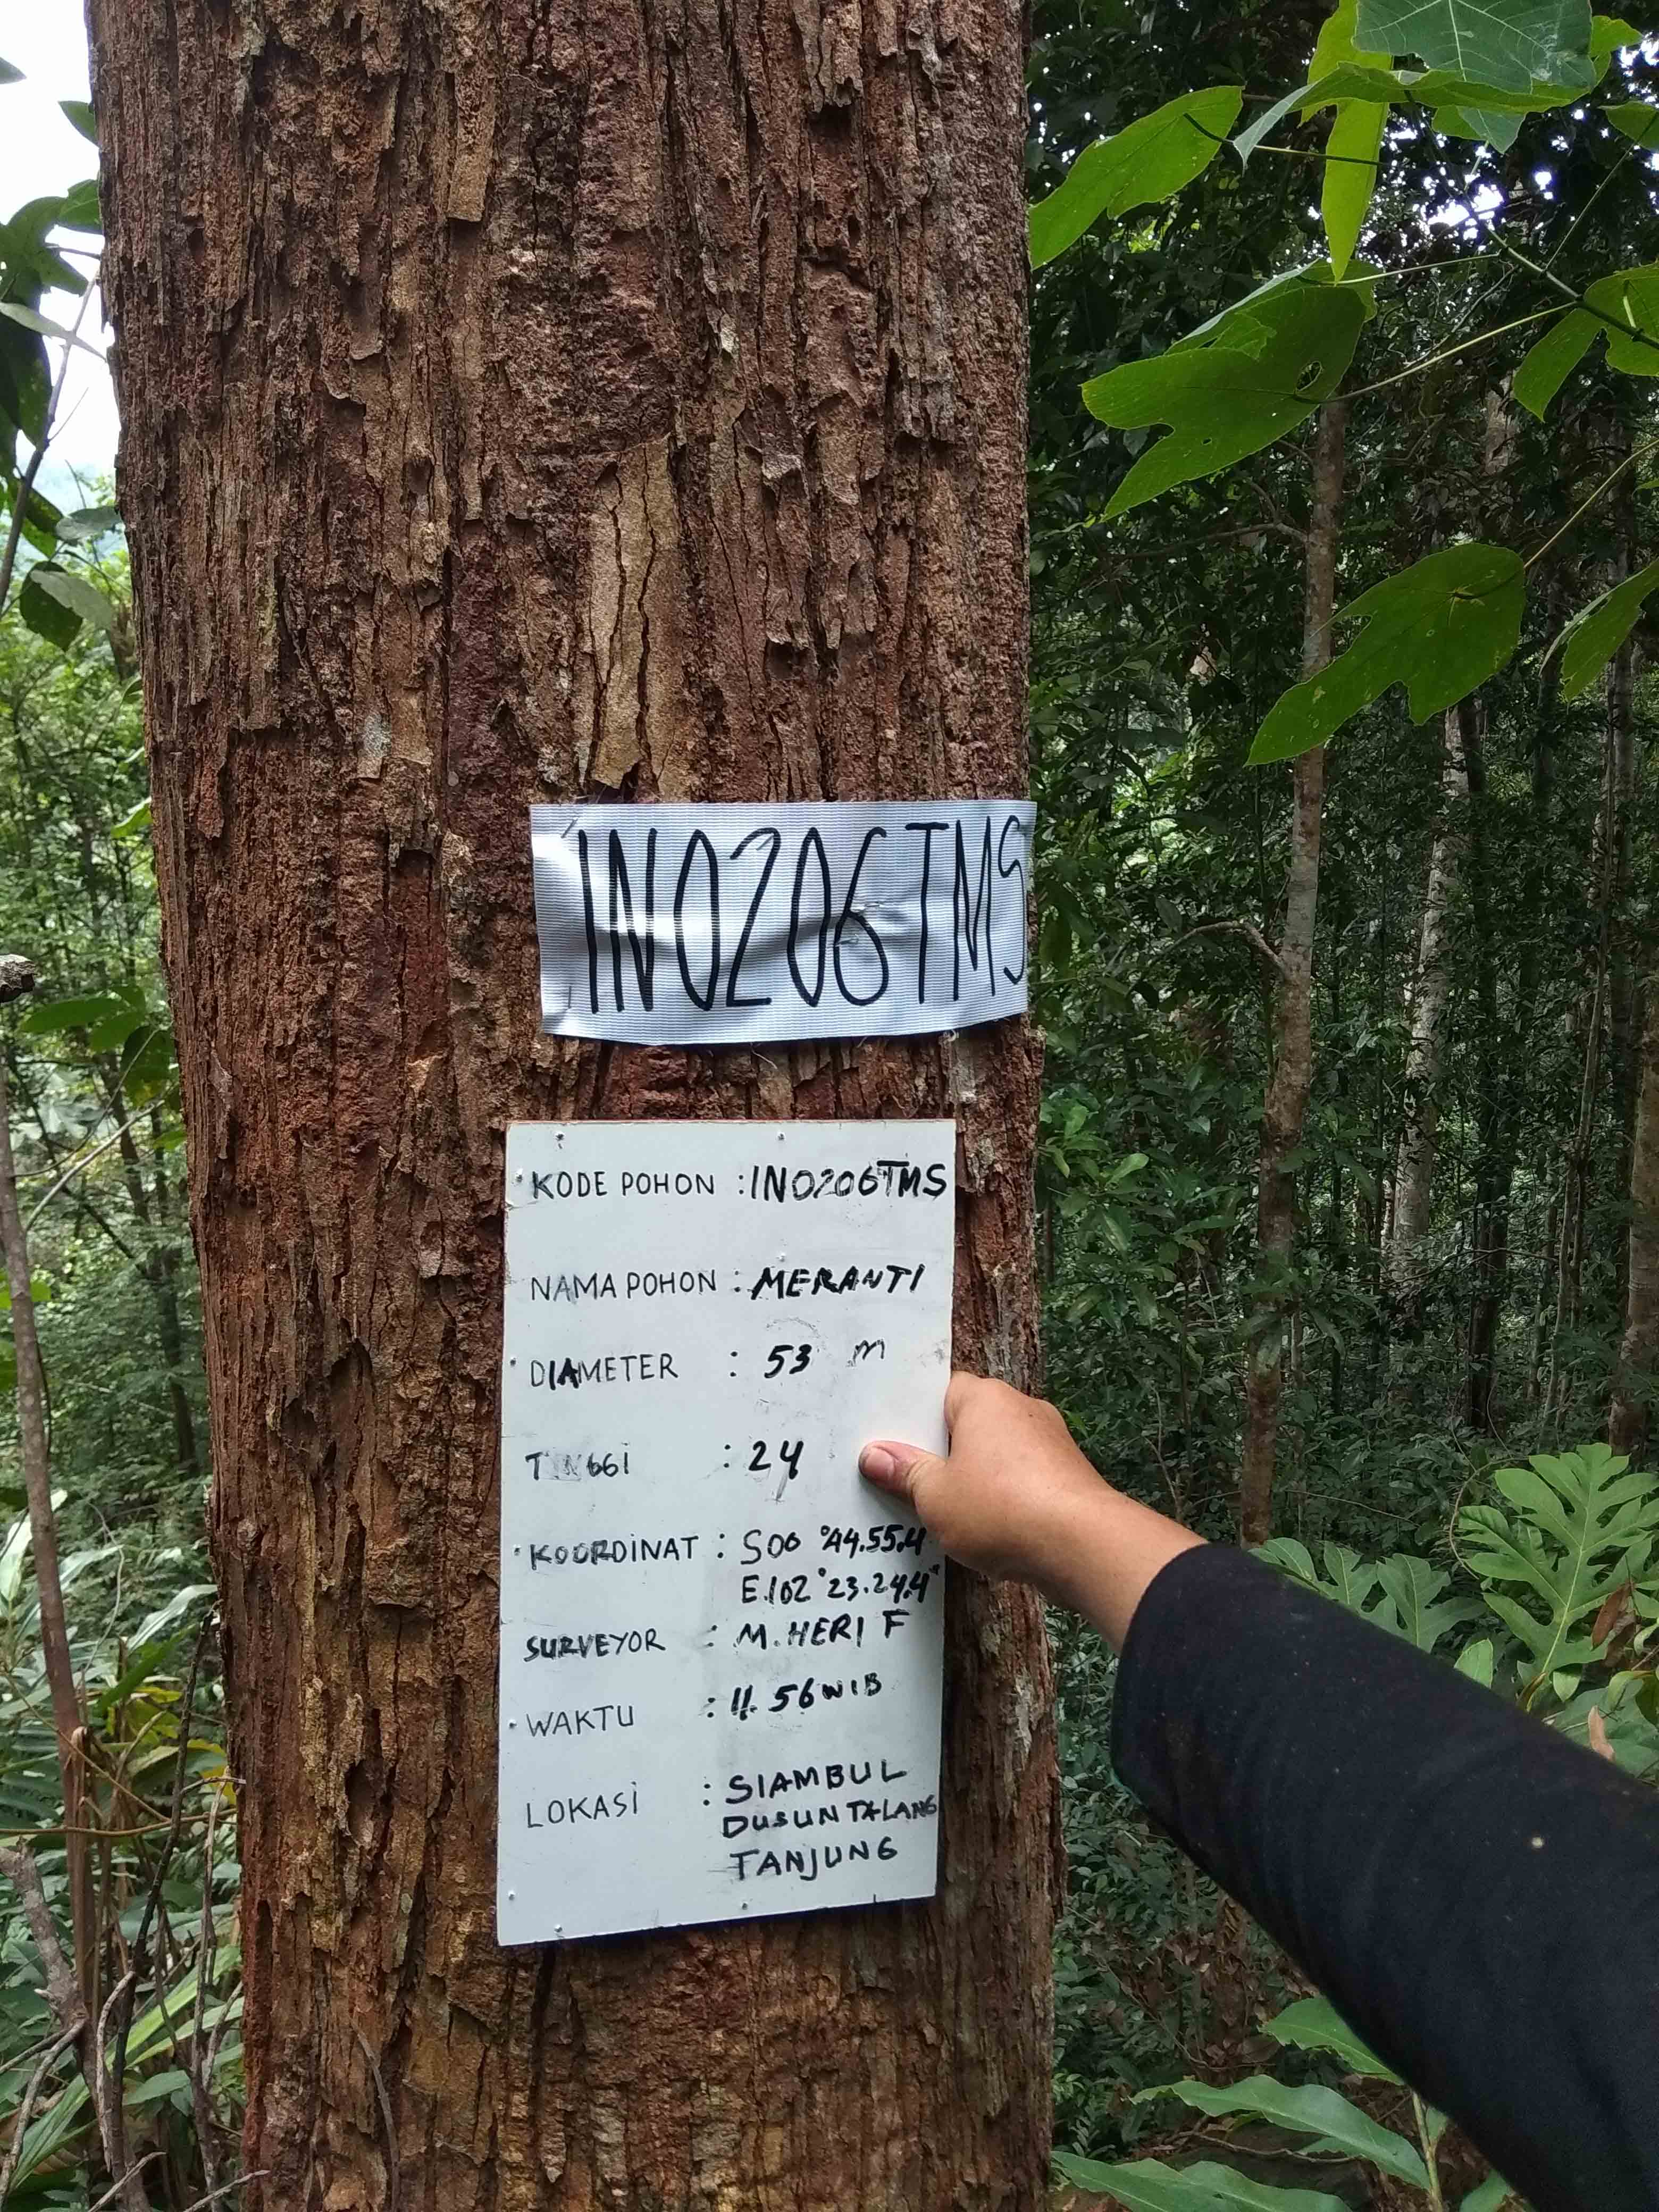 IN0206TMS
KODE POHON : IN0206TMS
NAMA POHON : MERANTI
DIAMETER : 53 m
TINGGI : 24
KOORDINAT : S00 °44.55.4
E.102°23.24.4"
SURVEYOR : M. HERI F
WAKTU : 11.56 WIB
LOKASI : SIAMBUL
DUSUN TALANG
TANJUNG